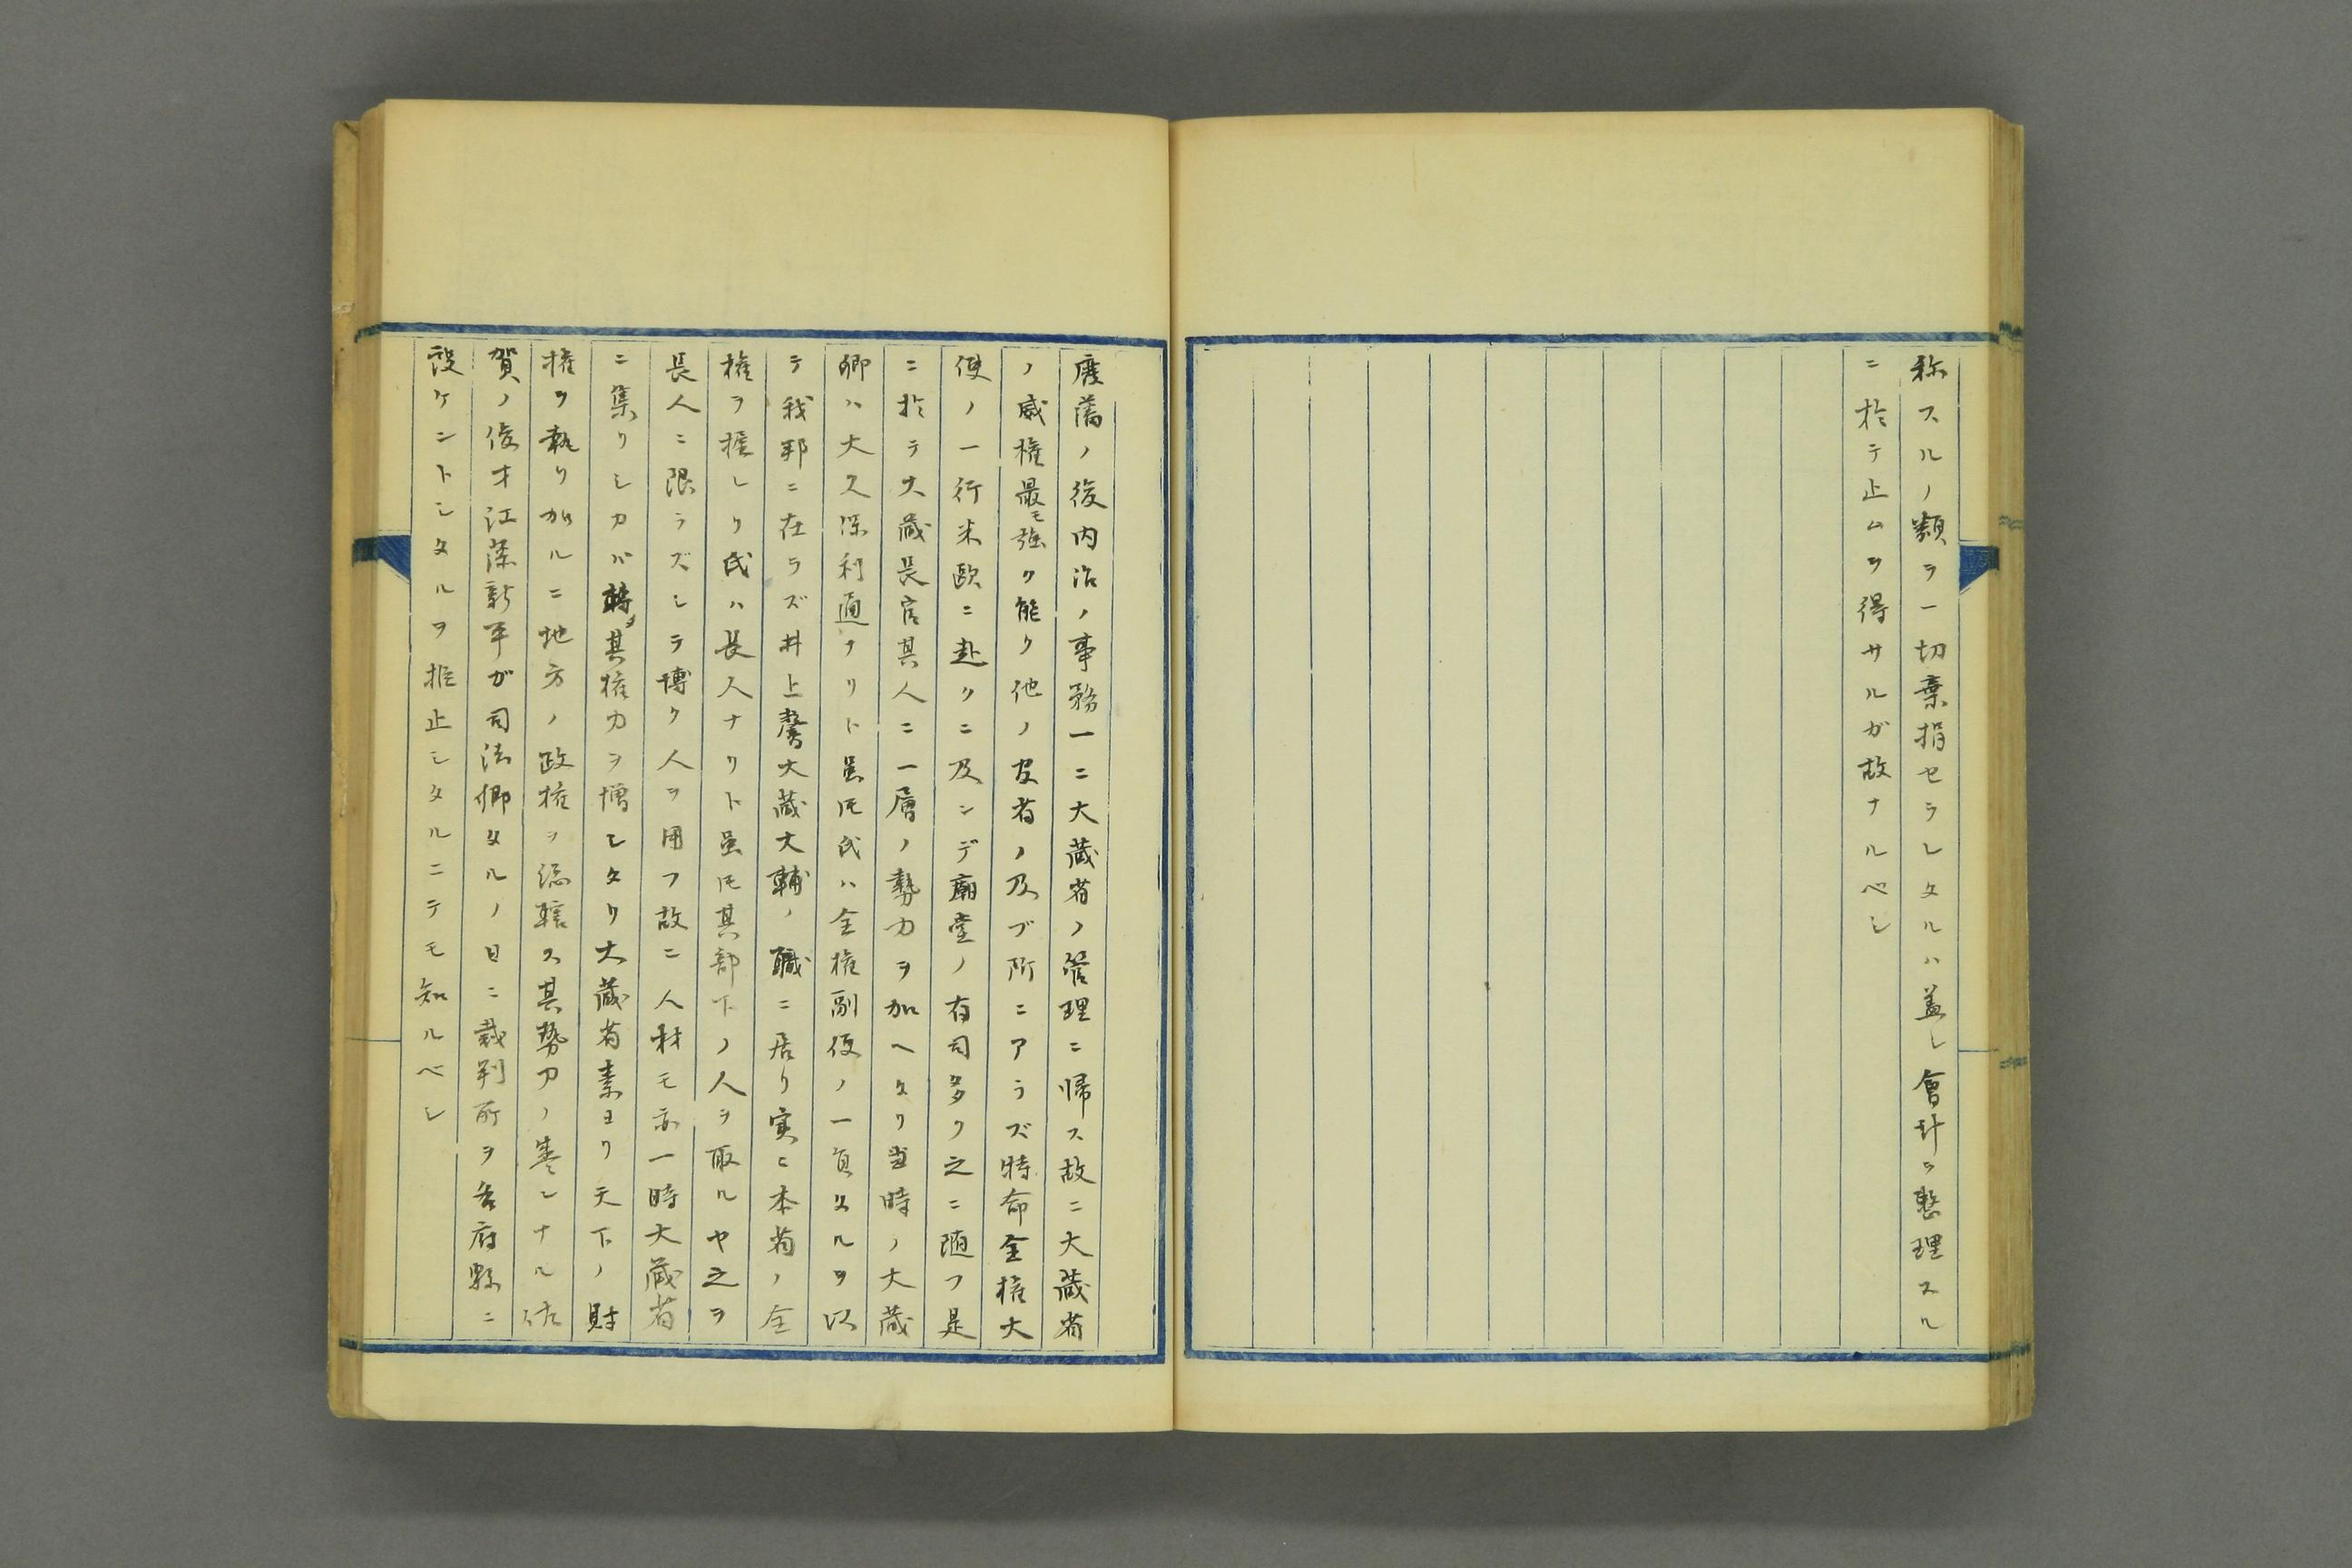 称スルノ類ヲ一切棄捐セラレタルハ蓋し會計ヲ整理スル
ニ於テ止ムヲ得サルガ故ナルベシ
廃藩ノ後内治ノ事務一ニ大蔵省ノ管理ニ帰ス故ニ大蔵省
ノ威権最モ強ク能ク他ノ各省ノ及ブ所ニアラズ特命全権大
使ノ一行米歐ニ赴クニ及ンデ廟堂ノ有司多ク之ニ随フ是
ニ於テ大蔵長官其人ニ一層ノ勢力ヲ加ヘタリ当時ノ大蔵
卿ハ大久保利通ナリト虽モ氏ハ全権副使ノ一員タルヲ以
テ我邦ニ在ラズ井上馨大蔵大輔ノ職ニ居リ実ニ本省ノ全
権ヲ握レリ氏ハ長人ナリト虽モ其部下ノ人ヲ取ルヤ之ヲ
長人ニ限ラズシテ博ク人ヲ用フ故ニ人材モ亦一時大蔵省
ニ集リシカバ轉タ其権力ヲ増シタリ大蔵省素ヨリ天下ノ財
権ヲ執リ加ルニ地方ノ政権ヲ総轄ス其勢力ノ盛ンナル佐
賀ノ俊才江藤新平ガ司法卿タルノ日ニ裁判所ヲ各府縣ニ
設ケントシタルヲ推止シタルニテモ知ルベシ